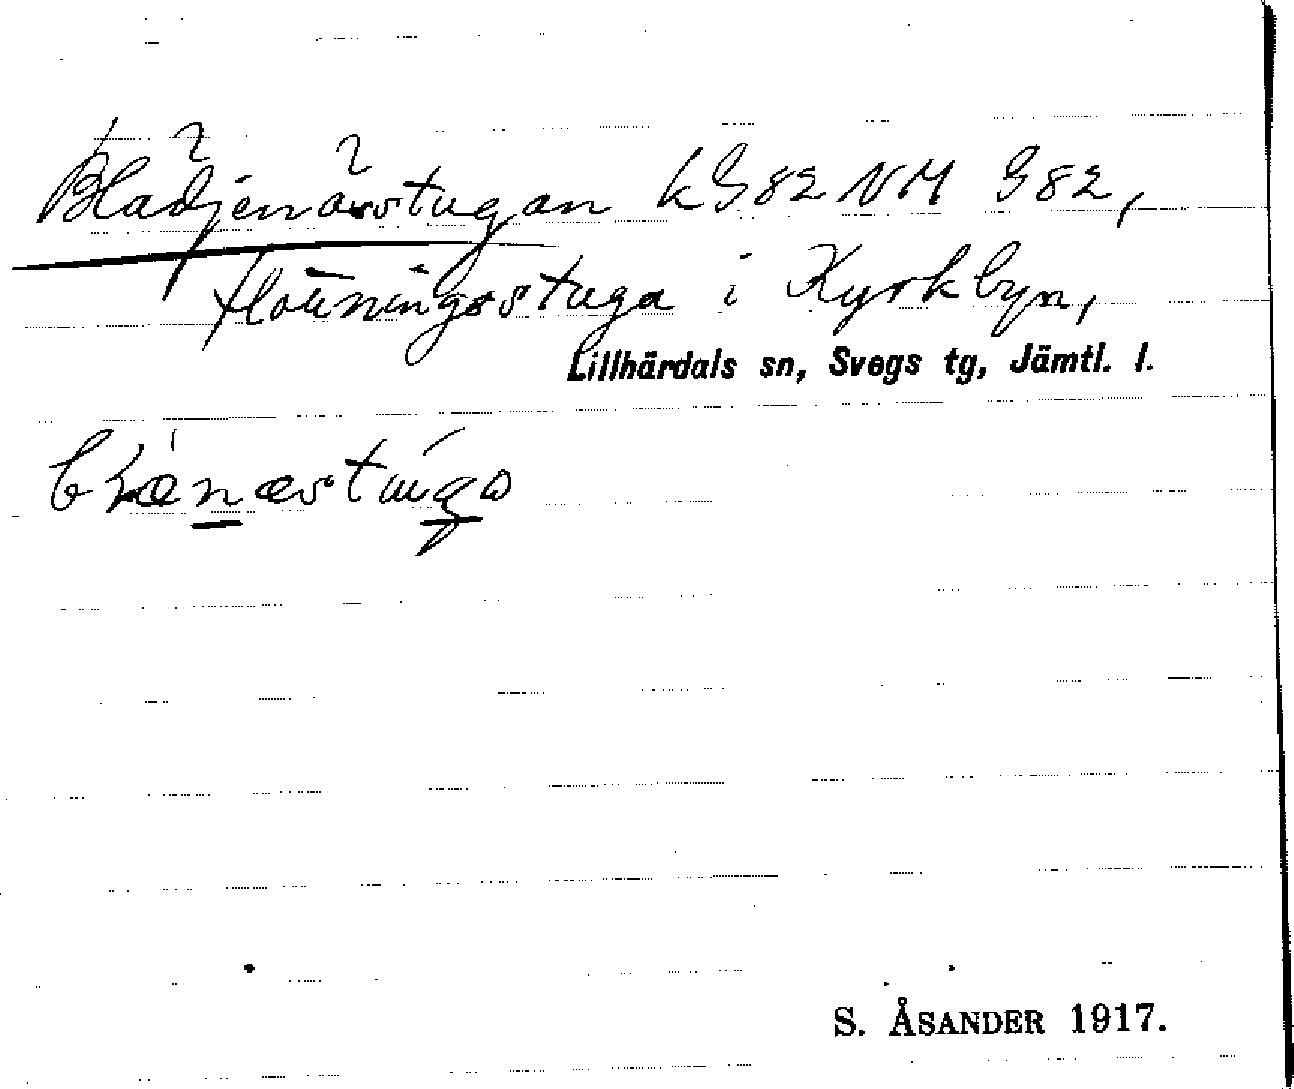 Blädjenåsstugan kG82 NM G82,
flottningsstuga i Kyrkbyn,
Lillhärdals sn, Svegs tg, Jämtl. l.
S. ÅSANDER 1917.